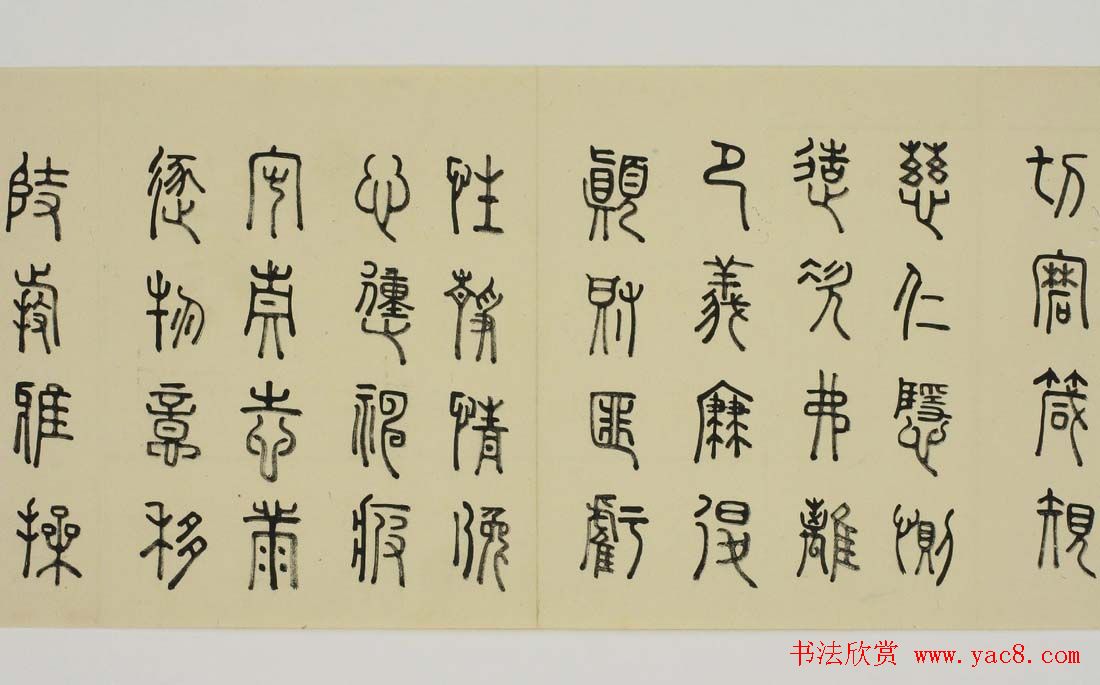 切磨箴規
慈仁隱惻
造次弗離
節義廉退
顛沛匪虧
性靜情逸
心動神疲
守真志滿
逐物意移
堅持雅操
书法欣赏 www.yac8.com